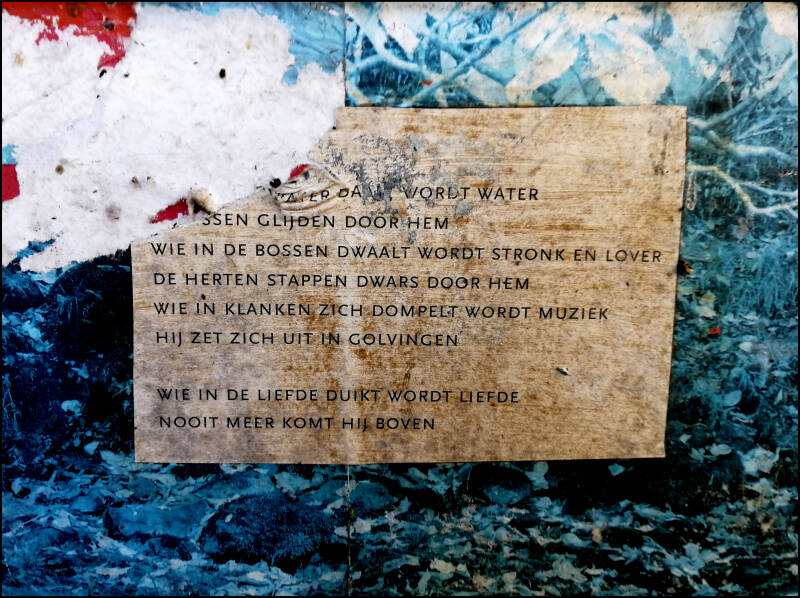 WORDT WATER
GLIJDEN DOOR HEM
WIE IN DE BOSSEN DWAALT WORDT STRONK EN LOVER
DE HERTEN STAPPEN DWARS DOOR HEM
WIE IN KLANKEN ZICH DOMPELT WORDT MUZIEK
HIJ ZET ZICH UIT IN GOLVINGEN
WIE IN DE LIEFDE DUIKT WORDT LIEFDE
NOOIT MEER KOMT HIJ BOVEN